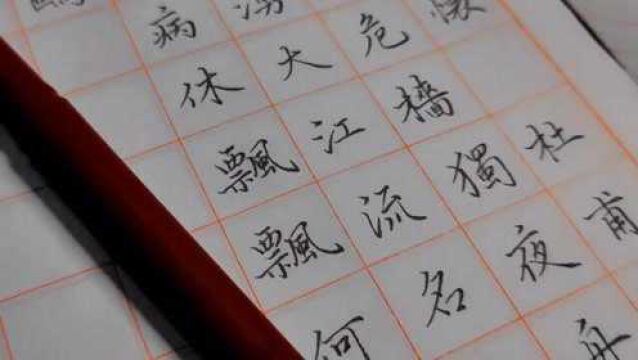 懷 杜甫
危檣獨夜舟
湧大江流名
病休飄飄何